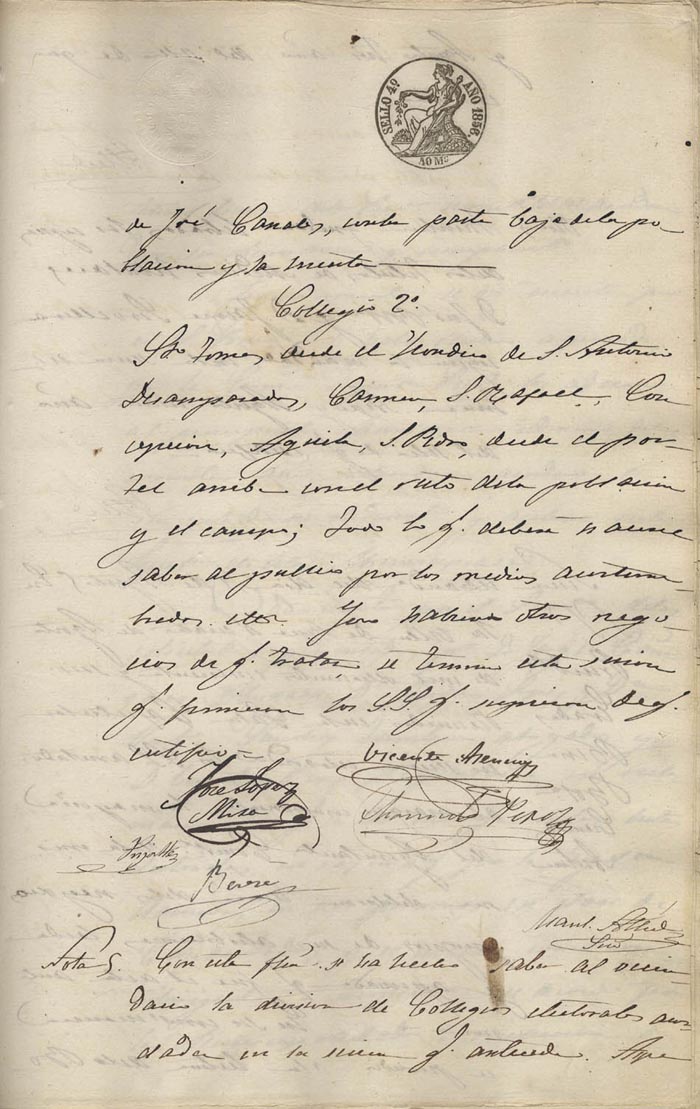 SELLO 4º AÑO 1856.
40 Ms.
de José Canales, con la parte baja de la po-
blacion y la
Collegio 2º
Sto Tomas desde el de S. Antonio
Desamparados, Carmen, S. Rafael, Con
cepcion, Aguila, S. Pedro, desde el por-
tel arriba con el resto de la poblacion
y el campo; Todo lo q. deberá hacerse
saber al publico por los medios acostum-
brados. Y no habiendo otros nego-
cios de q. tratar, se termina esta sesion
q. firmaron los S.S. q. supieron de q.
certifico =
Jose Lopez
Mira
Vicente Asencio
Thomas Perez
Berese
Man.l
Srio
Nota. Con esta fha. se ha hecho saber al vecin
dario la division de Collegios electorales acor
dada en la sesion q. antecede.